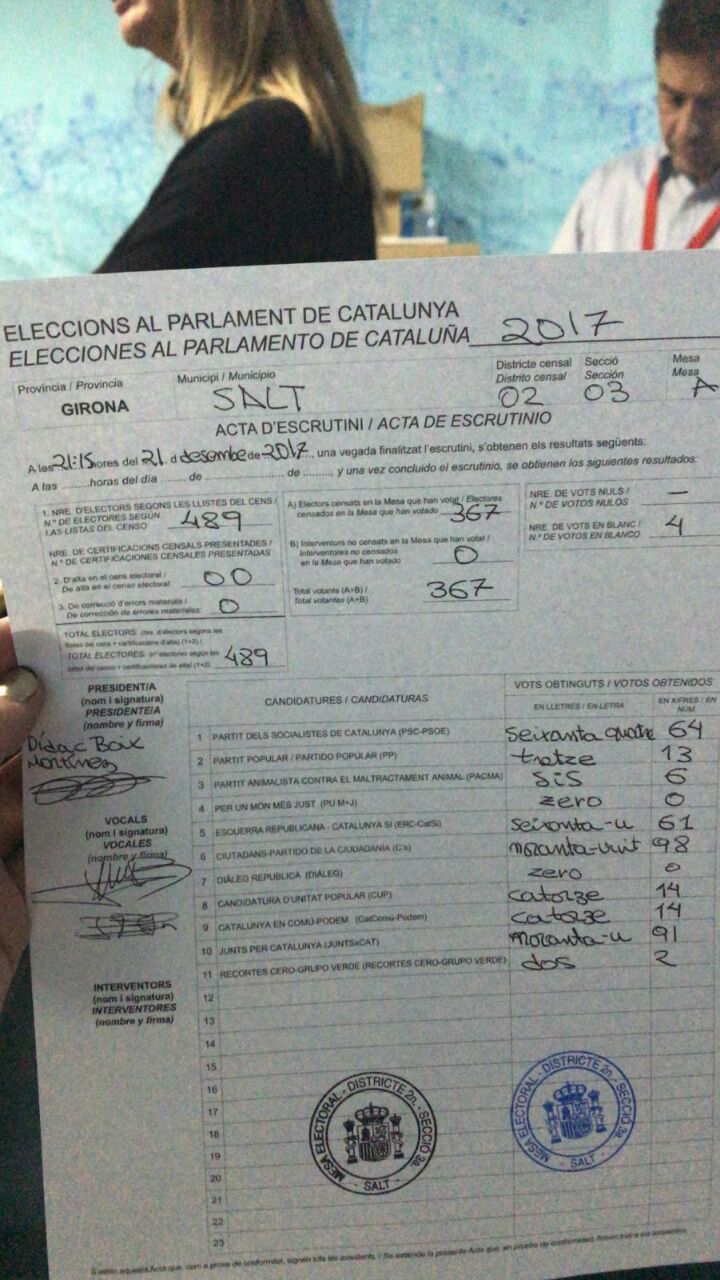 ELECCIONS AL PARLAMENT DE CATALUNYA
ELECCIONES AL PARLAMENTO DE CATALUÑA 2017
Provincia / Provincia
GIRONA
Municipi / Municipio
SALT
Districte censal
Distrito censal
02
Secció
Sección
03
Mesa
Mesa
A
ACTA D'ESCRUTINI / ACTA DE ESCRUTINIO
A les 21:15 hores del 21 d desembe de 2017, una vegada finalitzat l'escrutini, s'obtenen els resultats següents:
A las ........horas del día ....... de ........................ de ........, y una vez concluido el escrutinio, se obtienen los siguientes resultados:
1. NRE. D'ELECTORS SEGONS LES LLISTES DEL CENS /
N.º DE ELECTORES SEGÚN
LAS LISTAS DEL CENSO 489
NRE. DE CERTIFICACIONS CENSALS PRESENTADES /
N.º DE CERTIFICACIONES CENSALES PRESENTADAS
2. D'alta en el cens electoral /
De alta en el censo electoral: 00
3. De correcció d'errors materials /
De corrección de errores materiales: 0
TOTAL ELECTORS: (nre. d'electors segons les
llistes del cens + certificacions d'alta) (1+2) /
TOTAL ELECTORES: (nº electores según las
listas del censo + certificaciones de alta) (1+2) 489
A) Electors censats en la Mesa que han votat / Electores
censados en la Mesa que han votado 367
B) Interventors no censats en la Mesa que han votat /
Interventores no censados
en la Mesa que han votado 0
Total votants (A+B) /
Total votantes (A+B) 367
NRE. DE VOTS NULS /
N.º DE VOTOS NULOS —
NRE. DE VOTS EN BLANC /
N.º DE VOTOS EN BLANCO 4
PRESIDENT/A
(nom i signatura)
PRESIDENTE/A
(nombre y firma)
Dídac Boix
Martínez
VOCALS
(nom i signatura)
VOCALES
(nombre y firma)
INTERVENTORS
(nom i signatura)
INTERVENTORES
(nombre y firma)
CANDIDATURES / CANDIDATURAS
VOTS OBTINGUTS / VOTOS OBTENIDOS
EN LLETRES / EN LETRA
EN XIFRES / EN NÚM
1 PARTIT DELS SOCIALISTES DE CATALUNYA (PSC-PSOE) seixanta quatre 64
2 PARTIT POPULAR / PARTIDO POPULAR (PP) tretze 13
3 PARTIT ANIMALISTA CONTRA EL MALTRACTAMENT ANIMAL (PACMA) sis 6
4 PER UN MÓN MÉS JUST (PUM+J) zero 0
5 ESQUERRA REPUBLICANA - CATALUNYA SÍ (ERC-CatSí) seixanta-u 61
6 CIUTADANS-PARTIDO DE LA CIUDADANÍA (C's) noranta-vuit 98
7 DIÀLEG REPUBLICÀ (DIÀLEG) zero 0
8 CANDIDATURA D'UNITAT POPULAR (CUP) catorze 14
9 CATALUNYA EN COMÚ-PODEM (CatComú-Podem) catorze 14
10 JUNTS PER CATALUNYA (JUNTSxCAT) noranta-u 91
11 RECORTES CERO-GRUPO VERDE (RECORTES CERO-GRUPO VERDE) dos 2
12
13
14
15
16
17
18
19
20
21
22
23
MESA ELECTORAL - DISTRICTE 2n. - SECCIÓ 3a
- SALT -
MESA ELECTORAL - DISTRICTE 2n. - SECCIÓ 3a
- SALT -